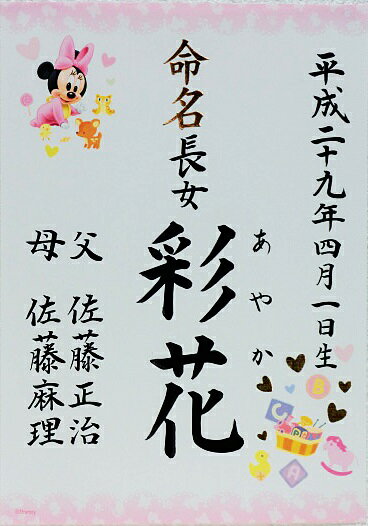 平成二十九年四月一日生
命名 長女
あやか
彩花
父 佐藤正治
母 佐藤麻理
©Disney
B
C
A